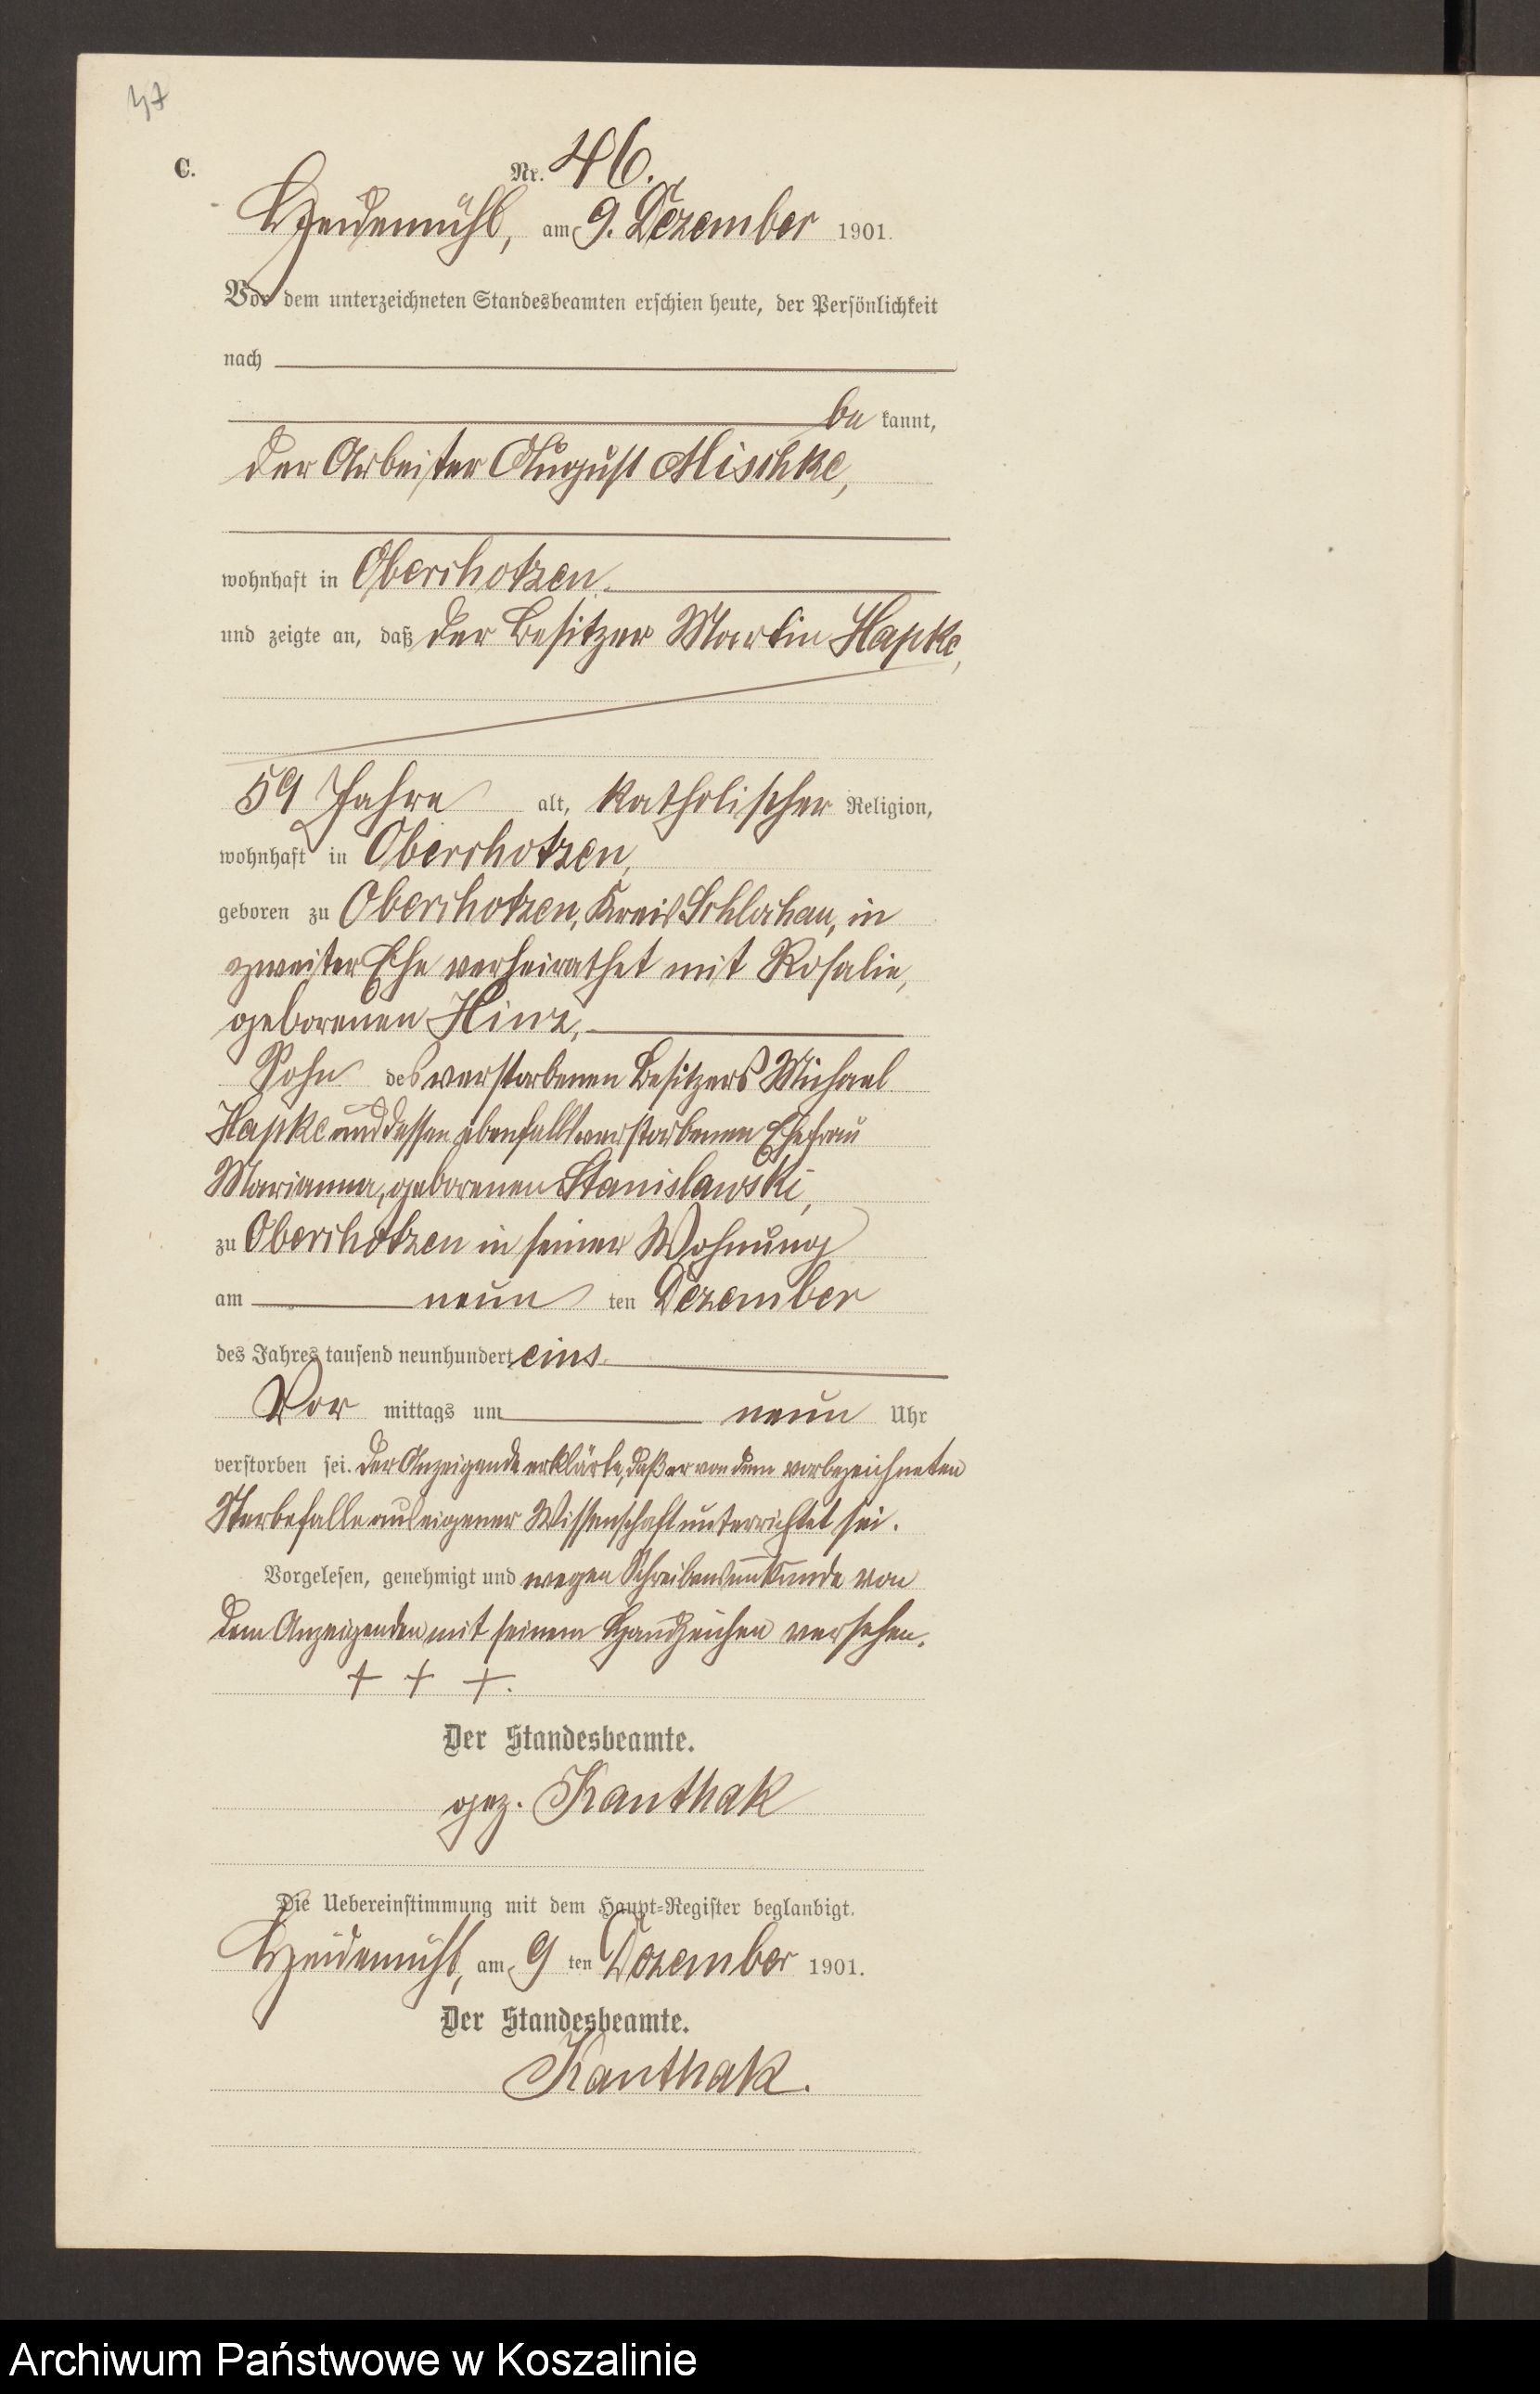 47
C.
Nr. 46.
Heidemühl, am 9. Dezember 1901.
Vor dem unterzeichneten Standesbeamten erschien heute, der Persönlichkeit
nach
be kannt,
der Arbeiter August Mischke,
wohnhaft in Oberchotzen.
und zeigte an, daß der Besitzer Martin Hapke,
59 Jahre alt, katholischer Religion,
wohnhaft in Oberchotzen,
geboren zu Oberchotzen, Kreis Schlochau, in
zweiter Ehe verheirathet mit Rosalie,
geborenen Hinz,
Sohn des verstorbenen Besitzers Michael
Hapke und dessen ebenfalls verstorbenen Ehefrau
Marianna, geborenen Stanislawski,
zu Oberchotzen in seiner Wohnung
am neun ten Dezember
des Jahres tausend neunhundert eins
Vor mittags um neun Uhr
verstorben sei. Der Anzeigende erklärte, daß er von dem vorbezeichneten
Sterbefalle aus eigener Wissenschaft unterrichtet sei.
Vorgelesen, genehmigt und wegen Schreibensunkunde von
dem Anzeigenden mit seinem Handzeichen versehen.
+ + +.
Der Standesbeamte.
gez. Kanthak
Die Uebereinstimmung mit dem Haupt-Register beglaubigt.
Heidemühl, am 9 ten Dezember 1901.
Der Standesbeamte.
Kanthak.
Archiwum Państwowe w Koszalinie